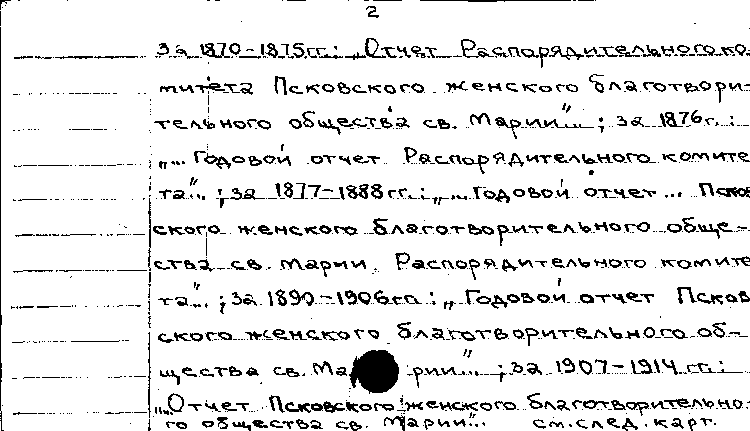 2
за 1870-1875гг.: „Отчет Распорядительного ко-
митета Псковского женского благотвори-
тельного общества св. Марии"...; за 1876г.:
„... Годовой отчет Распорядительного комите
та"..; за 1877-1888гг.: „... Годовой отчет... Псков
ского женского благотворительного обще-
ства св. Марии. Распорядительного комите
та"..; за 1890-1906гг.: „Годовой отчет Псков
ского женского благотворительного об-
щества св. Марии"...; за 1907-1914 гг.:
„Отчет Псковского женского благотворительно-
го общества св. Марии".. см. след. карт.